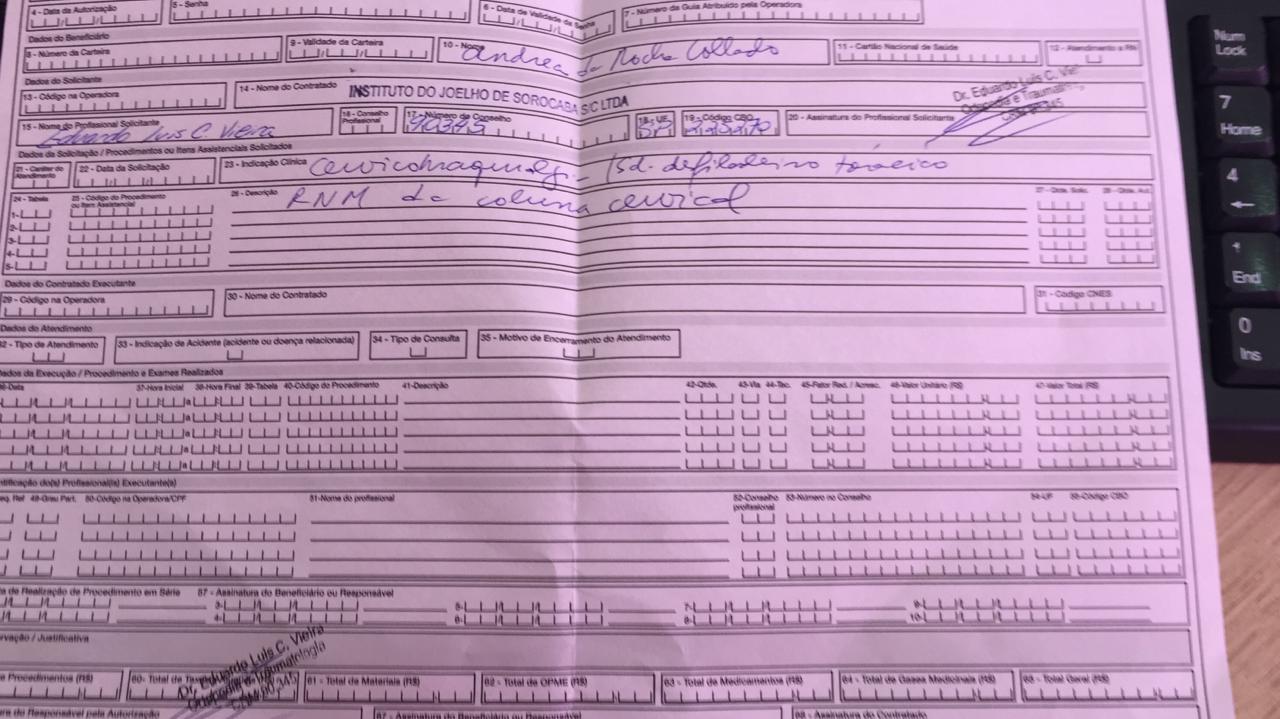 4 - Data da Autorização 5 - Senha 6 - Data de Validade da Senha 7 - Número da Guia Atribuído pela Operadora
Dados do Beneficiário
8 - Número da Carteira 9 - Validade da Carteira 10 - Nome Andrea da Rocha Collado 11 - Cartão Nacional de Saúde 12 - Atendimento a RN
Dados do Solicitante
13 - Código na Operadora 14 - Nome do Contratado INSTITUTO DO JOELHO DE SOROCABA S/C LTDA
Dr. Eduardo Luis C. Vieira
Ortopedia e Traumatologia
15 - Nome do Profissional Solicitante Eduardo Luis C. Vieira 16 - Conselho Profissional 17 - Número do Conselho 90345 18 - UF SP 19 - Código CBO 225270 20 - Assinatura do Profissional Solicitante
Dados da Solicitação / Procedimentos ou Itens Assistenciais Solicitados
21 - Caráter do Atendimento 22 - Data da Solicitação 23 - Indicação Clínica / Sd. desfiladeiro torácico
24 - Tabela 25 - Código do Procedimento ou Item Assistencial 26 - Descrição RNM da coluna cervical 27 - Qtde. Solic. 28 - Qtde. Aut.
1-
2-
3-
4-
5-
Dados do Contratado Executante
29 - Código na Operadora 30 - Nome do Contratado 31 - Código CNES
Dados do Atendimento
32 - Tipo de Atendimento 33 - Indicação de Acidente (acidente ou doença relacionada) 34 - Tipo de Consulta 35 - Motivo de Encerramento do Atendimento
Dados da Execução / Procedimento e Exames Realizados
36-Data 37-Hora Inicial 38-Hora Final 39-Tabela 40-Código do Procedimento 41-Descrição 42-Qtde. 43-Via 44-Tec. 45-Fator Red. / Acresc. 46-Valor Unitário (R$) 47-Valor Total (R$)
Identificação do(s) Profissional(is) Executante(s)
Seq. Ref 49-Grau Part. 50-Código na Operadora/CPF 51-Nome do profissional 52-Conselho profissional 53-Número no Conselho 54-UF 55-Código CBO
de Realização de Procedimento em Série 57 - Assinatura do Beneficiário ou Responsável
3- 5- 7- 9-
4- 6- 8- 10-
Observação / Justificativa
Dr. Eduardo Luis C. Vieira
Ortopedia e Traumatologia
Procedimentos (R$) 60- Total de 61 - Total de Materiais (R$) 62 - Total de OPME (R$) 63 - Total de Medicamentos (R$) 64 - Total de Gases Medicinais (R$) 65 - Total Geral (R$)
do Responsável pela Autorização 67 - Assinatura do Beneficiário ou Responsável 68 - Assinatura do Contratado
Num
Lock
7
Home
4
←
1
End
0
Ins